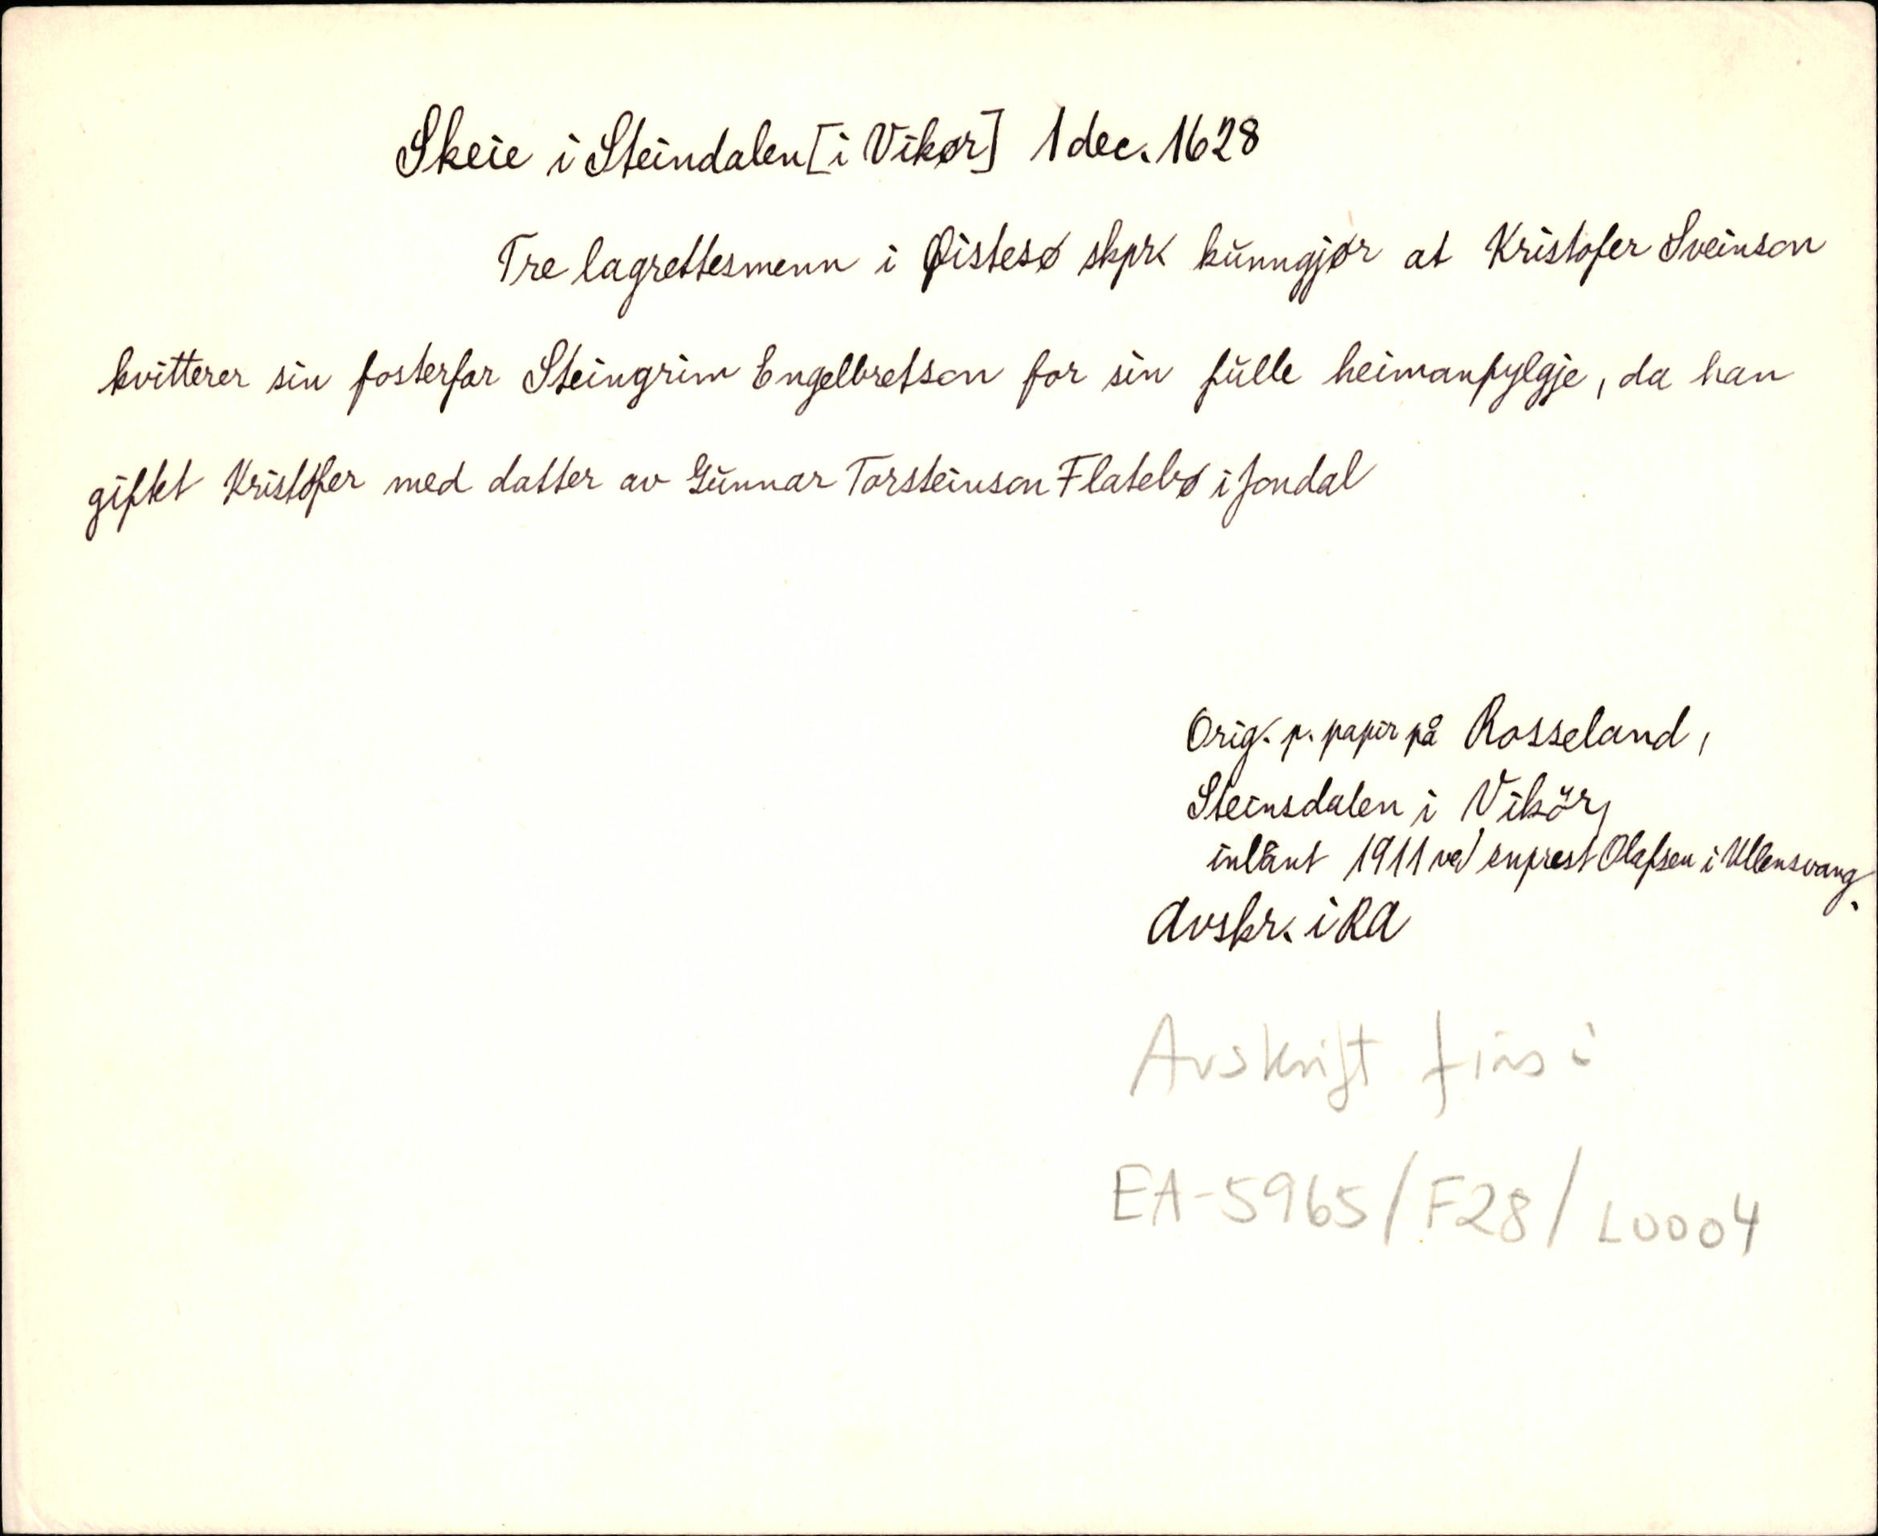 Skeie i Steindalen [i Vikør] 1 dec. 1628
Tre lagrettesmenn i Øistesø skpr. kunngjør at Kristofer Sveinson
kvitterer sin fosterfar Steingrim Engelbretson for sin fulle heimanfylgje, da han
giftet Kristofer med datter av Gunnar Torsteinson Flatebø i Jondal
Orig. p. papir på Rosseland,
Steinsdalen i Vikör,
inlånt 1911 ved snprest Olafsen i Ullensvang.
Avskr. i RA
Avskrift fins i
EA-5965/F28/L0004